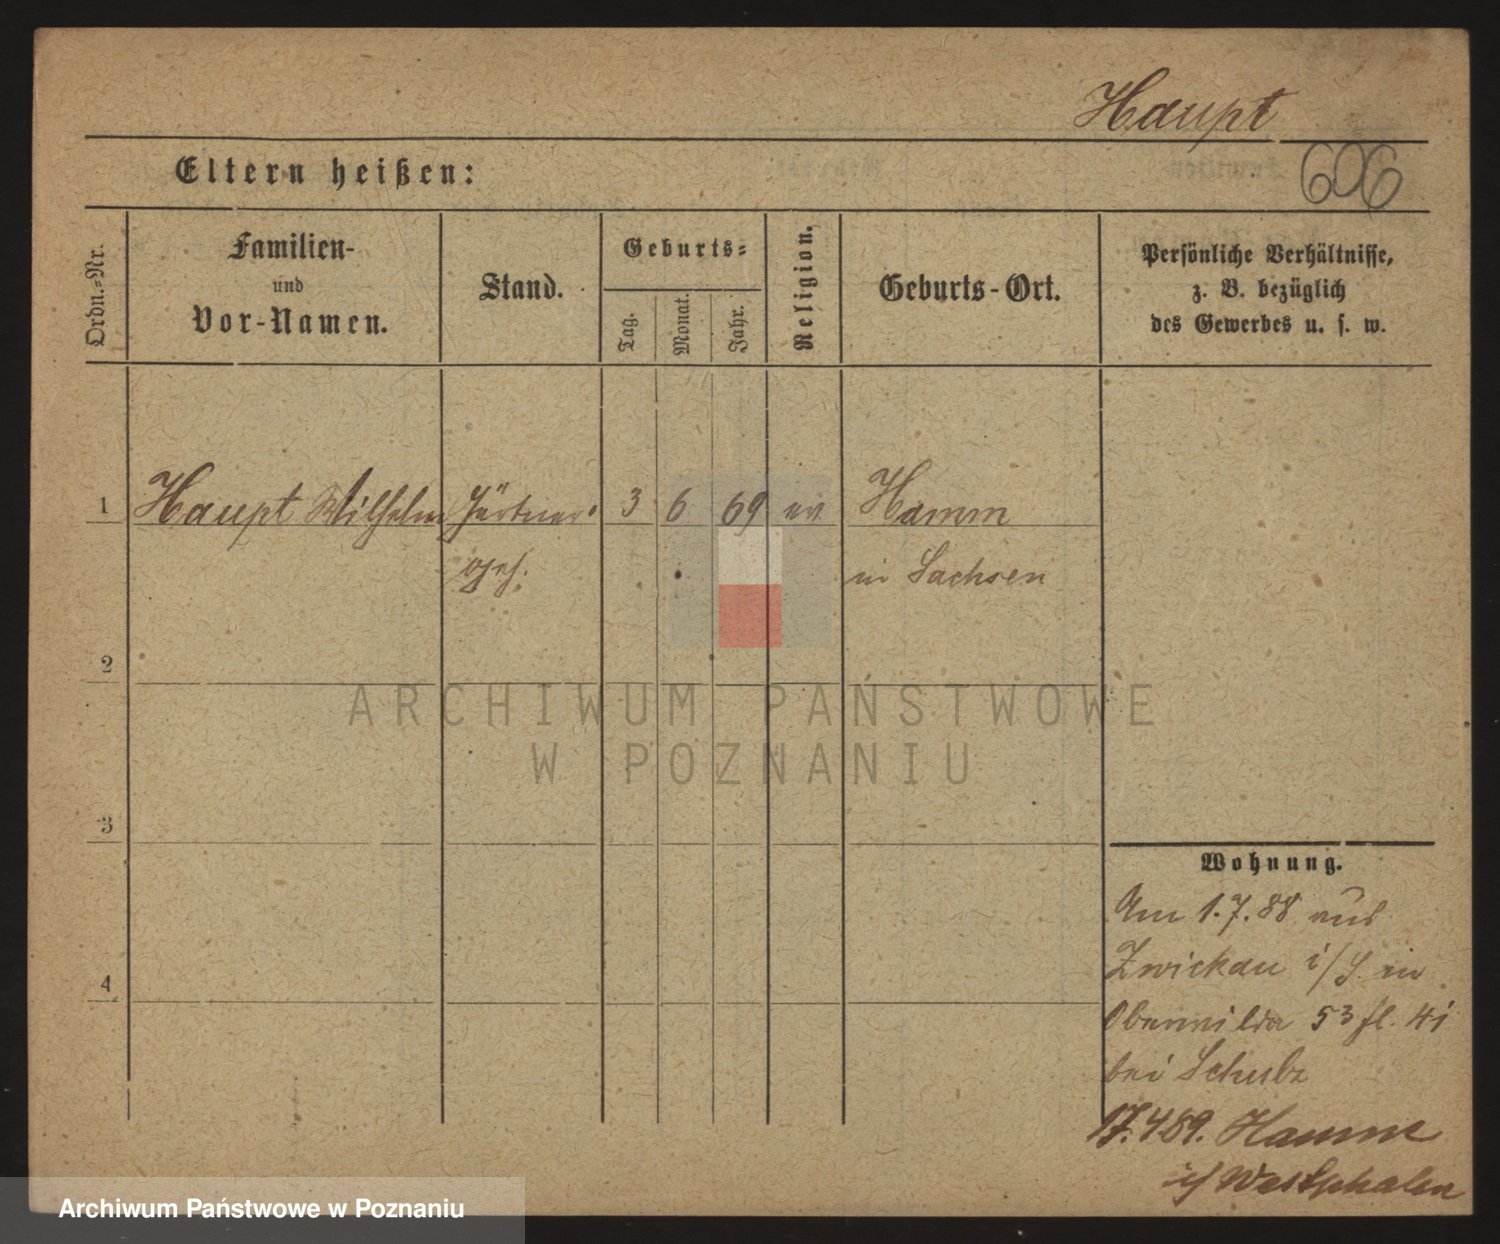 Haupt
Eltern heißen:
606
Ordn.-Nr.
Familien-
und
Vor-Namen.
Stand.
Geburts-
Tag.
Monat.
Jahr.
Religion.
Geburts-Ort.
Persönliche Verhältnisse,
z. B. bezüglich
des Gewerbes u. s. w.
1 Haupt Wilhelm Gärtner 3 6 69 ev Hamm
geh. in Sachsen
2
ARCHIWUM PAŃSTWOWE
W POZNANIU
3
4
Wohnung.
Am 1.7.88 aus
Zwickau i/S. in
Oberwilda 53 fl.
bei Schulz
17.4.89. Hamm
i/ Westphalen
Archiwum Państwowe w Poznaniu